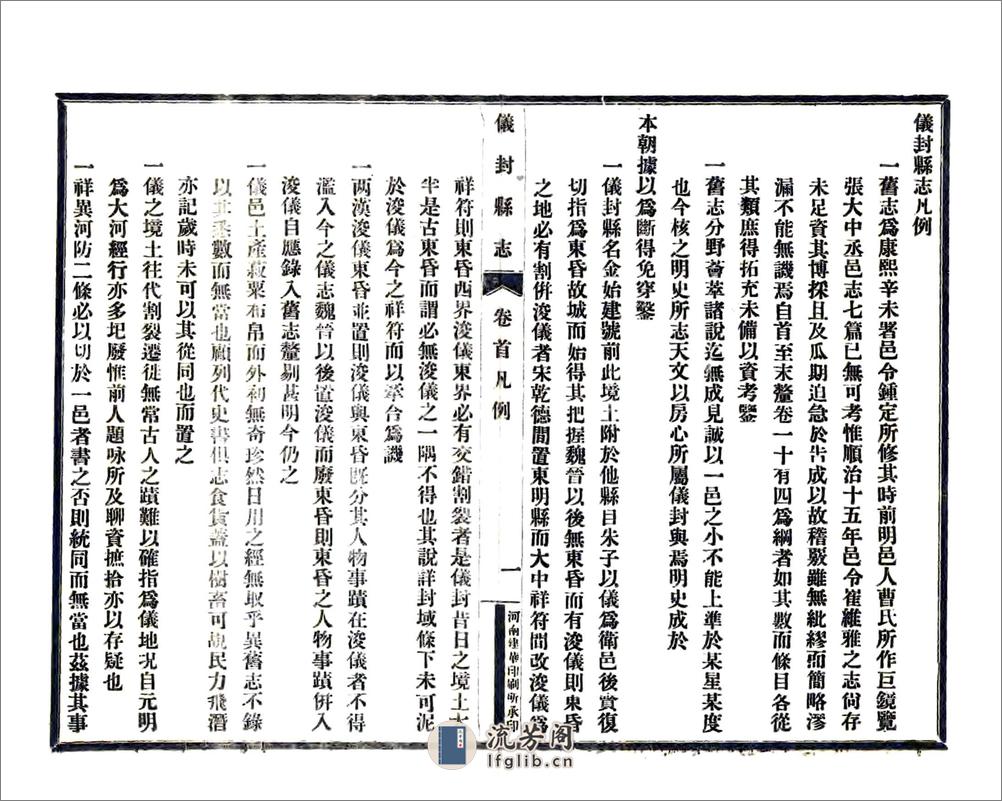 儀封縣志凡例
一舊志爲康熙辛未署邑令鍾定所修其時前明邑人曹氏所作巨鏡覽
張大中丞邑志七篇已無可考惟順治十五年邑令崔維雅之志尙存
未足資其博採且及瓜期迫急於告成以故稽覈雖無紕繆而簡略滲
漏不能無譏焉自首至末釐卷一十有四爲綱者如其數而條目各從
其類庶得拓充未備以資考鑒
一舊志分野薈萃諸說迄無成見誠以一邑之小不能上準於某星某度
也今核之明史所志天文以房心所屬儀封與焉明史成於
本朝據以爲斷得免穿鑿
一儀封縣名金始建號前此境土附於他縣目朱子以儀爲衛邑後賞復
切指爲東昏故城而始得其把握魏晉以後無東昏而有浚儀則東昏
之地必有割併浚儀者宋乾德間置東明縣而大中祥符間改浚儀爲
儀封縣志
卷首凡例
一
河南建華印刷所承印
祥符則東昏西界浚儀東界必有交錯割裂者是儀封昔日之境土大
半是古東昏而謂必無浚儀之一隅不得也其說詳封域條下未可泥
於浚儀爲今之祥符而以牽合爲譏
一两漢浚儀東昏並置則浚儀與東昏旣分其人物事蹟在浚儀者不得
濫入今之儀志魏晉以後置浚儀而廢東昏則東昏之人物事蹟併入
浚儀自應錄入舊志釐剔甚明今仍之
一儀邑土產菽粟布帛而外初無奇珍然日用之經無取乎異舊志不錄
以其乘數而無當也顧列代史書俱志食貨蓋以樹畜可覘民力飛潛
亦記歲時未可以其從同也而置之
一儀之境土往代割裂遷徙無常古人之蹟難以確指爲儀地况自元明
爲大河經行亦多圮廢惟前人題咏所及聊資摭拾亦以存疑也
一祥異河防二條必以切於一邑者書之否則統同而無當也茲據其事
流芳阁
lfglib.cn